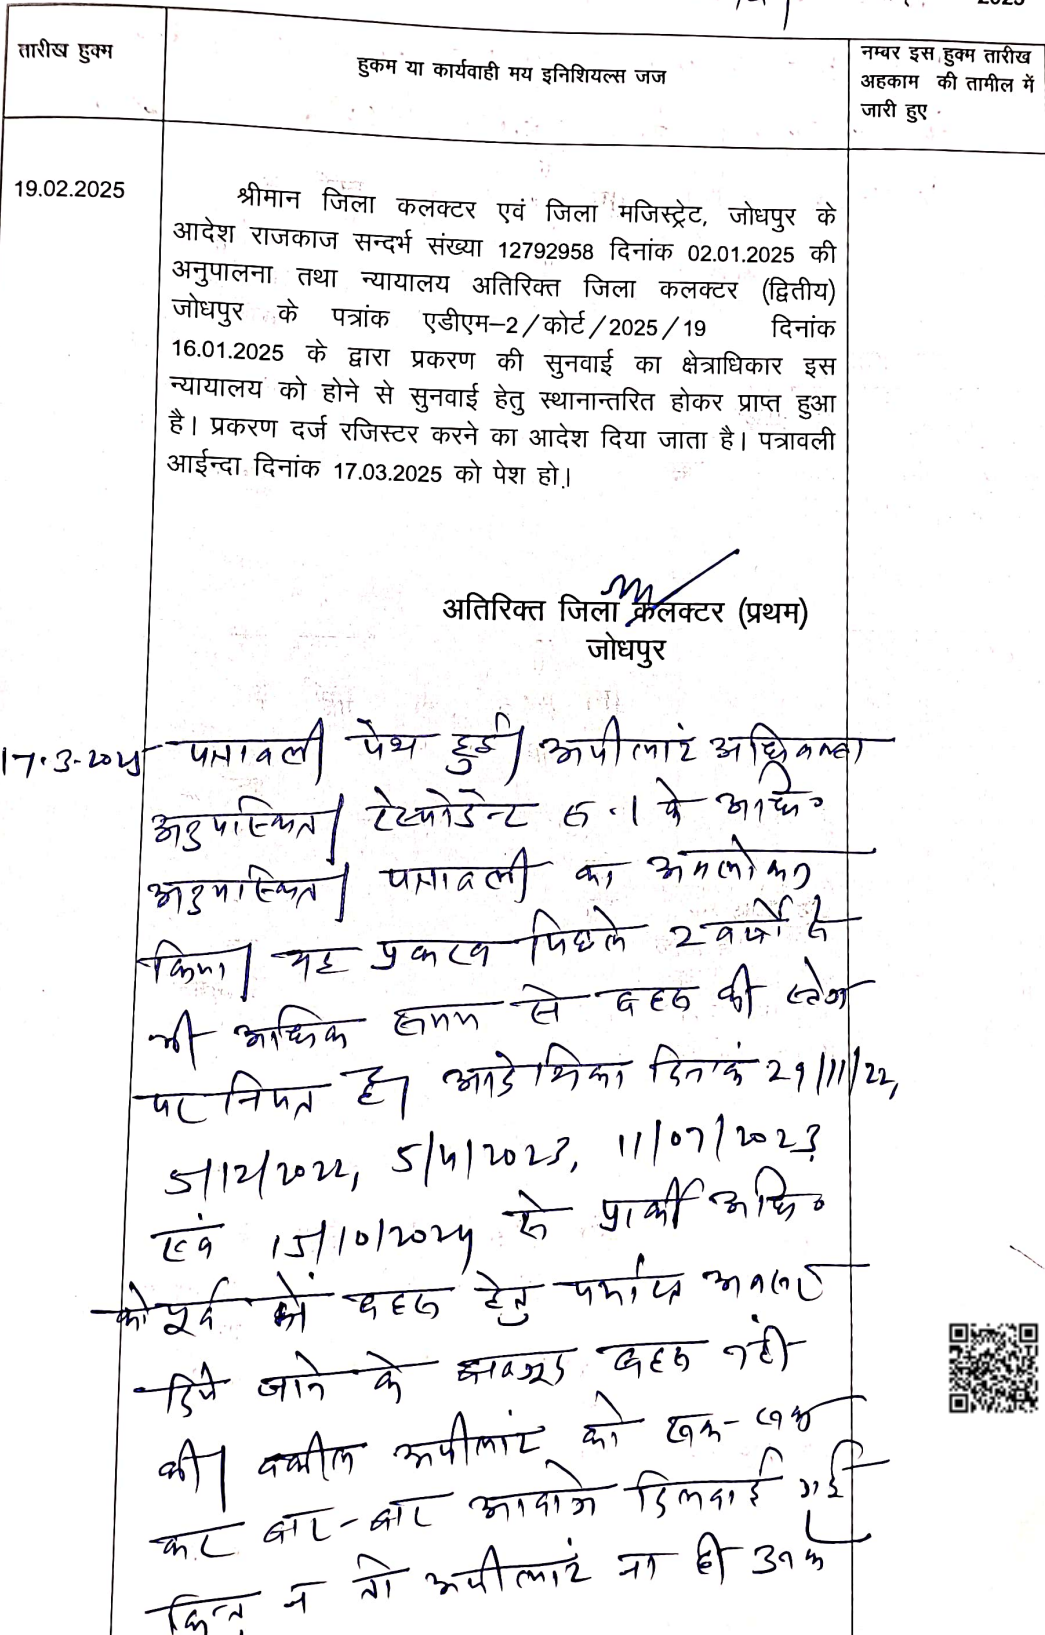 2025
तारीख हुक्म
हुकम या कार्यवाही मय इनिशियल्स जज
नम्बर इस हुक्म तारीख
अहकाम की तामील में
जारी हुए
19.02.2025
श्रीमान जिला कलक्टर एवं जिला मजिस्ट्रेट, जोधपुर के
आदेश राजकाज सन्दर्भ संख्या 12792958 दिनांक 02.01.2025 की
अनुपालना तथा न्यायालय अतिरिक्त जिला कलक्टर (द्वितीय)
जोधपुर के पत्रांक एडीएम-2/कोर्ट/2025/19 दिनांक
16.01.2025 के द्वारा प्रकरण की सुनवाई का क्षेत्राधिकार इस
न्यायालय को होने से सुनवाई हेतु स्थानान्तरित होकर प्राप्त हुआ
है। प्रकरण दर्ज रजिस्टर करने का आदेश दिया जाता है। पत्रावली
आईन्दा दिनांक 17.03.2025 को पेश हो।
अतिरिक्त जिला कलक्टर (प्रथम)
जोधपुर
17.3.2025 पत्रावली पेश हुई। अपीलांट अधिवक्ता
अनुपस्थित। रेस्पोडेन्ट सं.1 के अधि०
अनुपस्थित। पत्रावली का अवलोकन
किया। यह प्रकरण पिछले 2 वर्षो से
भी अधिक समय से बहस की स्टेज
पर नियत है। आदेशिका दिनांक 29/11/22,
5/12/2022, 5/4/2023, 11/07/2023
एवं 15/10/2024 से प्रार्थी अधि०
को पूर्व में बहस हेतु पर्याप्त अवसर
दिये जाने के बावजूद बहस नहीं
की। वकील अपीलांट को रूक-रूक
कर बार-बार आवाजे दिलवाई गई
किन्तु न तो अपीलांट ना ही उनके